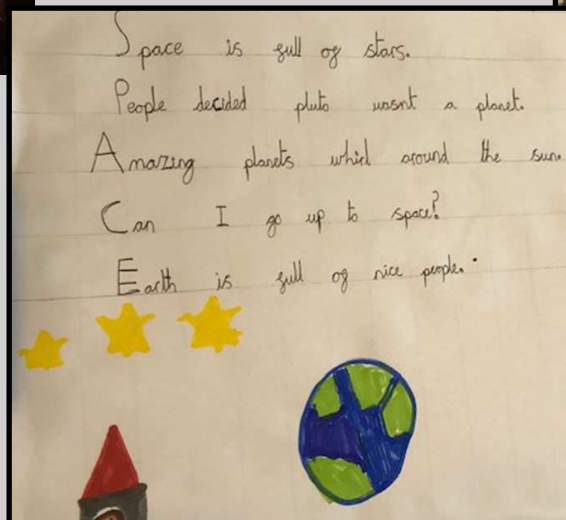 Space is full of stars.
People decided pluto wasnt a planet.
Amazing planets whirl around the sun.
Can I go up to space?
Earth is full of nice people.